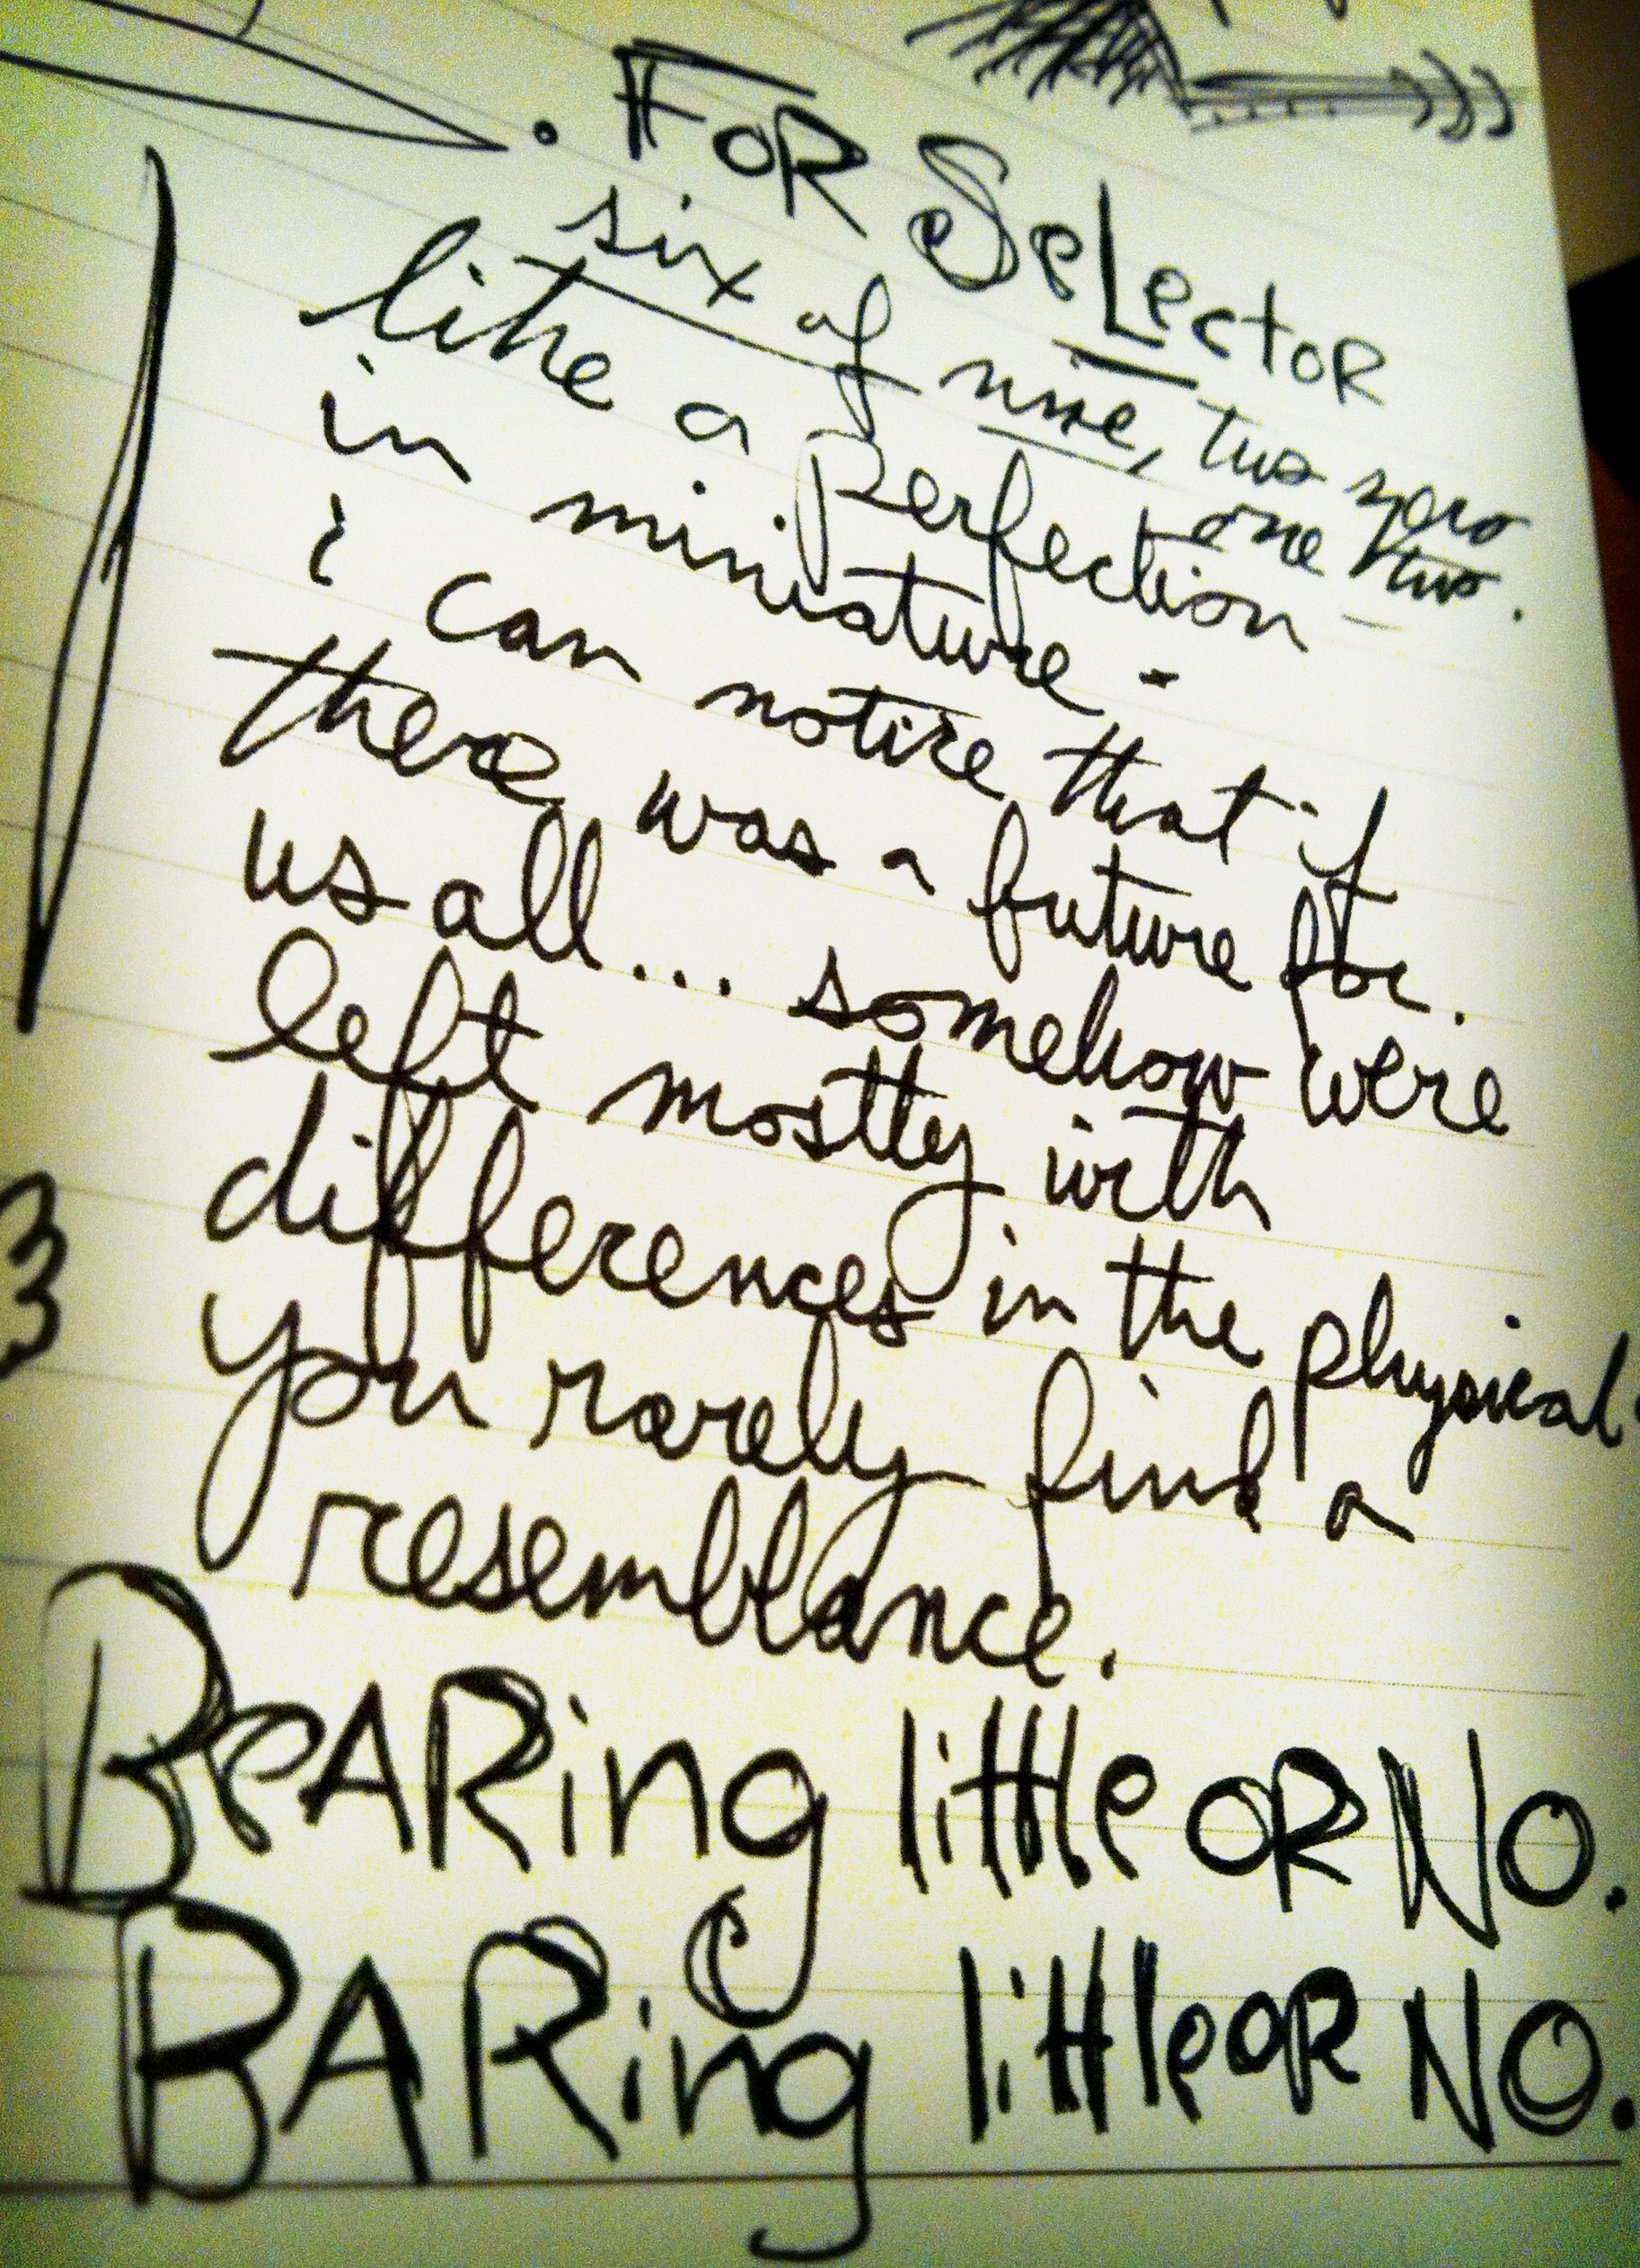 . FOR SeLectoR
six of nine, two zero
one two.
like a perfection -
in miniature -
i can notice that if
there was a future for.
us all... somehow were
left mostly with
differences in the physical.
you rarely find a
resemblance.
BeARing little OR NO.
BARing little OR NO.
3